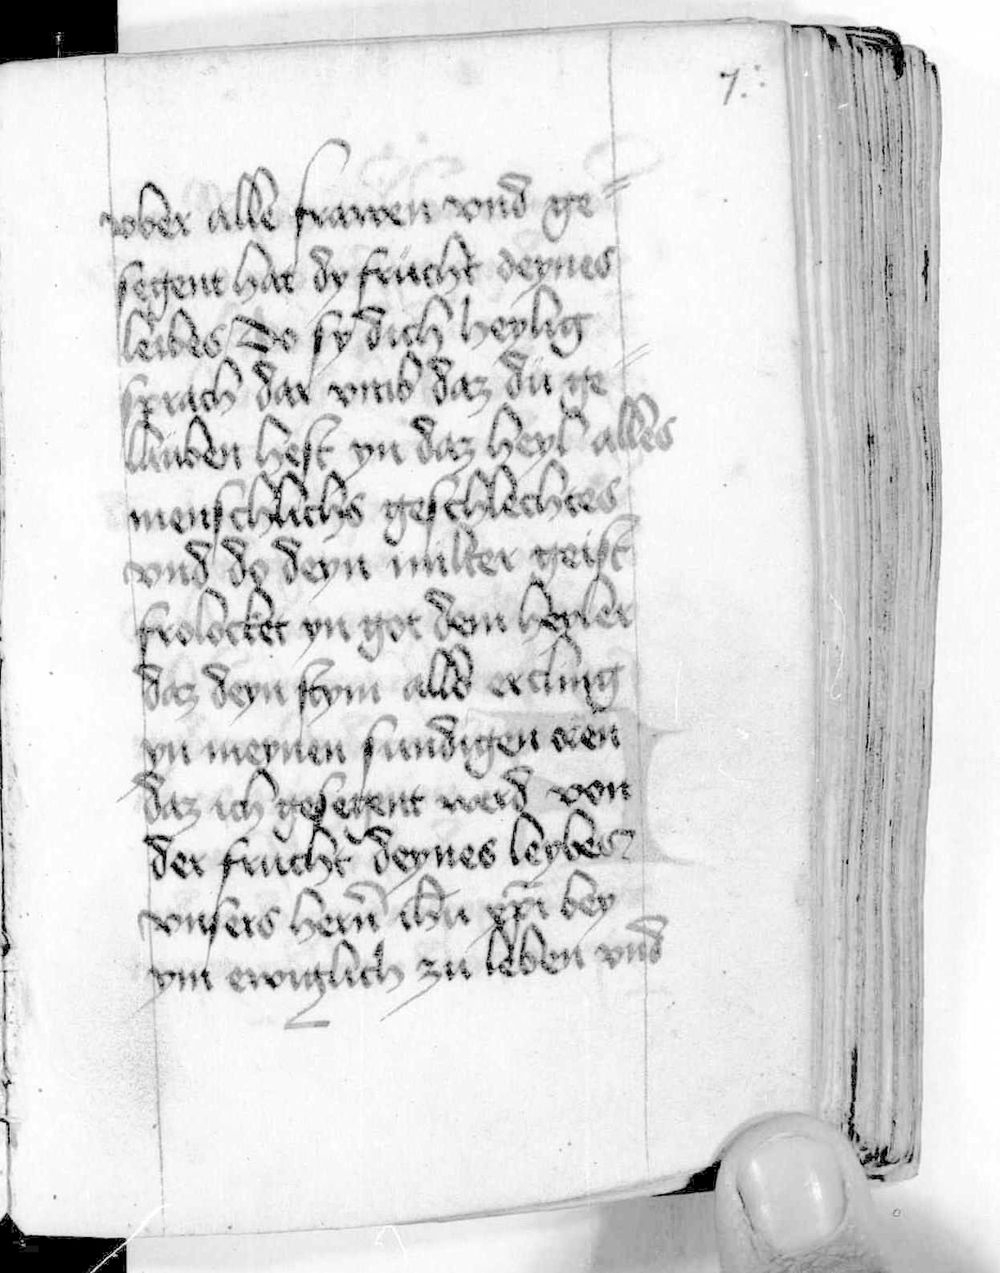 7.
vber alle frawen vnd ge⸗
segent hat dy frücht deynes
leibes Do sy dich heylig
sprach dar vmb daz dü ge⸗
lauben hest yn daz heyl alles
menschlichs geschlechtes
vnd do deyn milter geist
frolocket yn got dem heyler
daz deyn stym also ercling
yn meynen sundigen oren
daz ich gesegent werd von
der frücht deynes leybes
vnsers hern̄ ihū xpī bey
ym ewiglich zu leben vnd